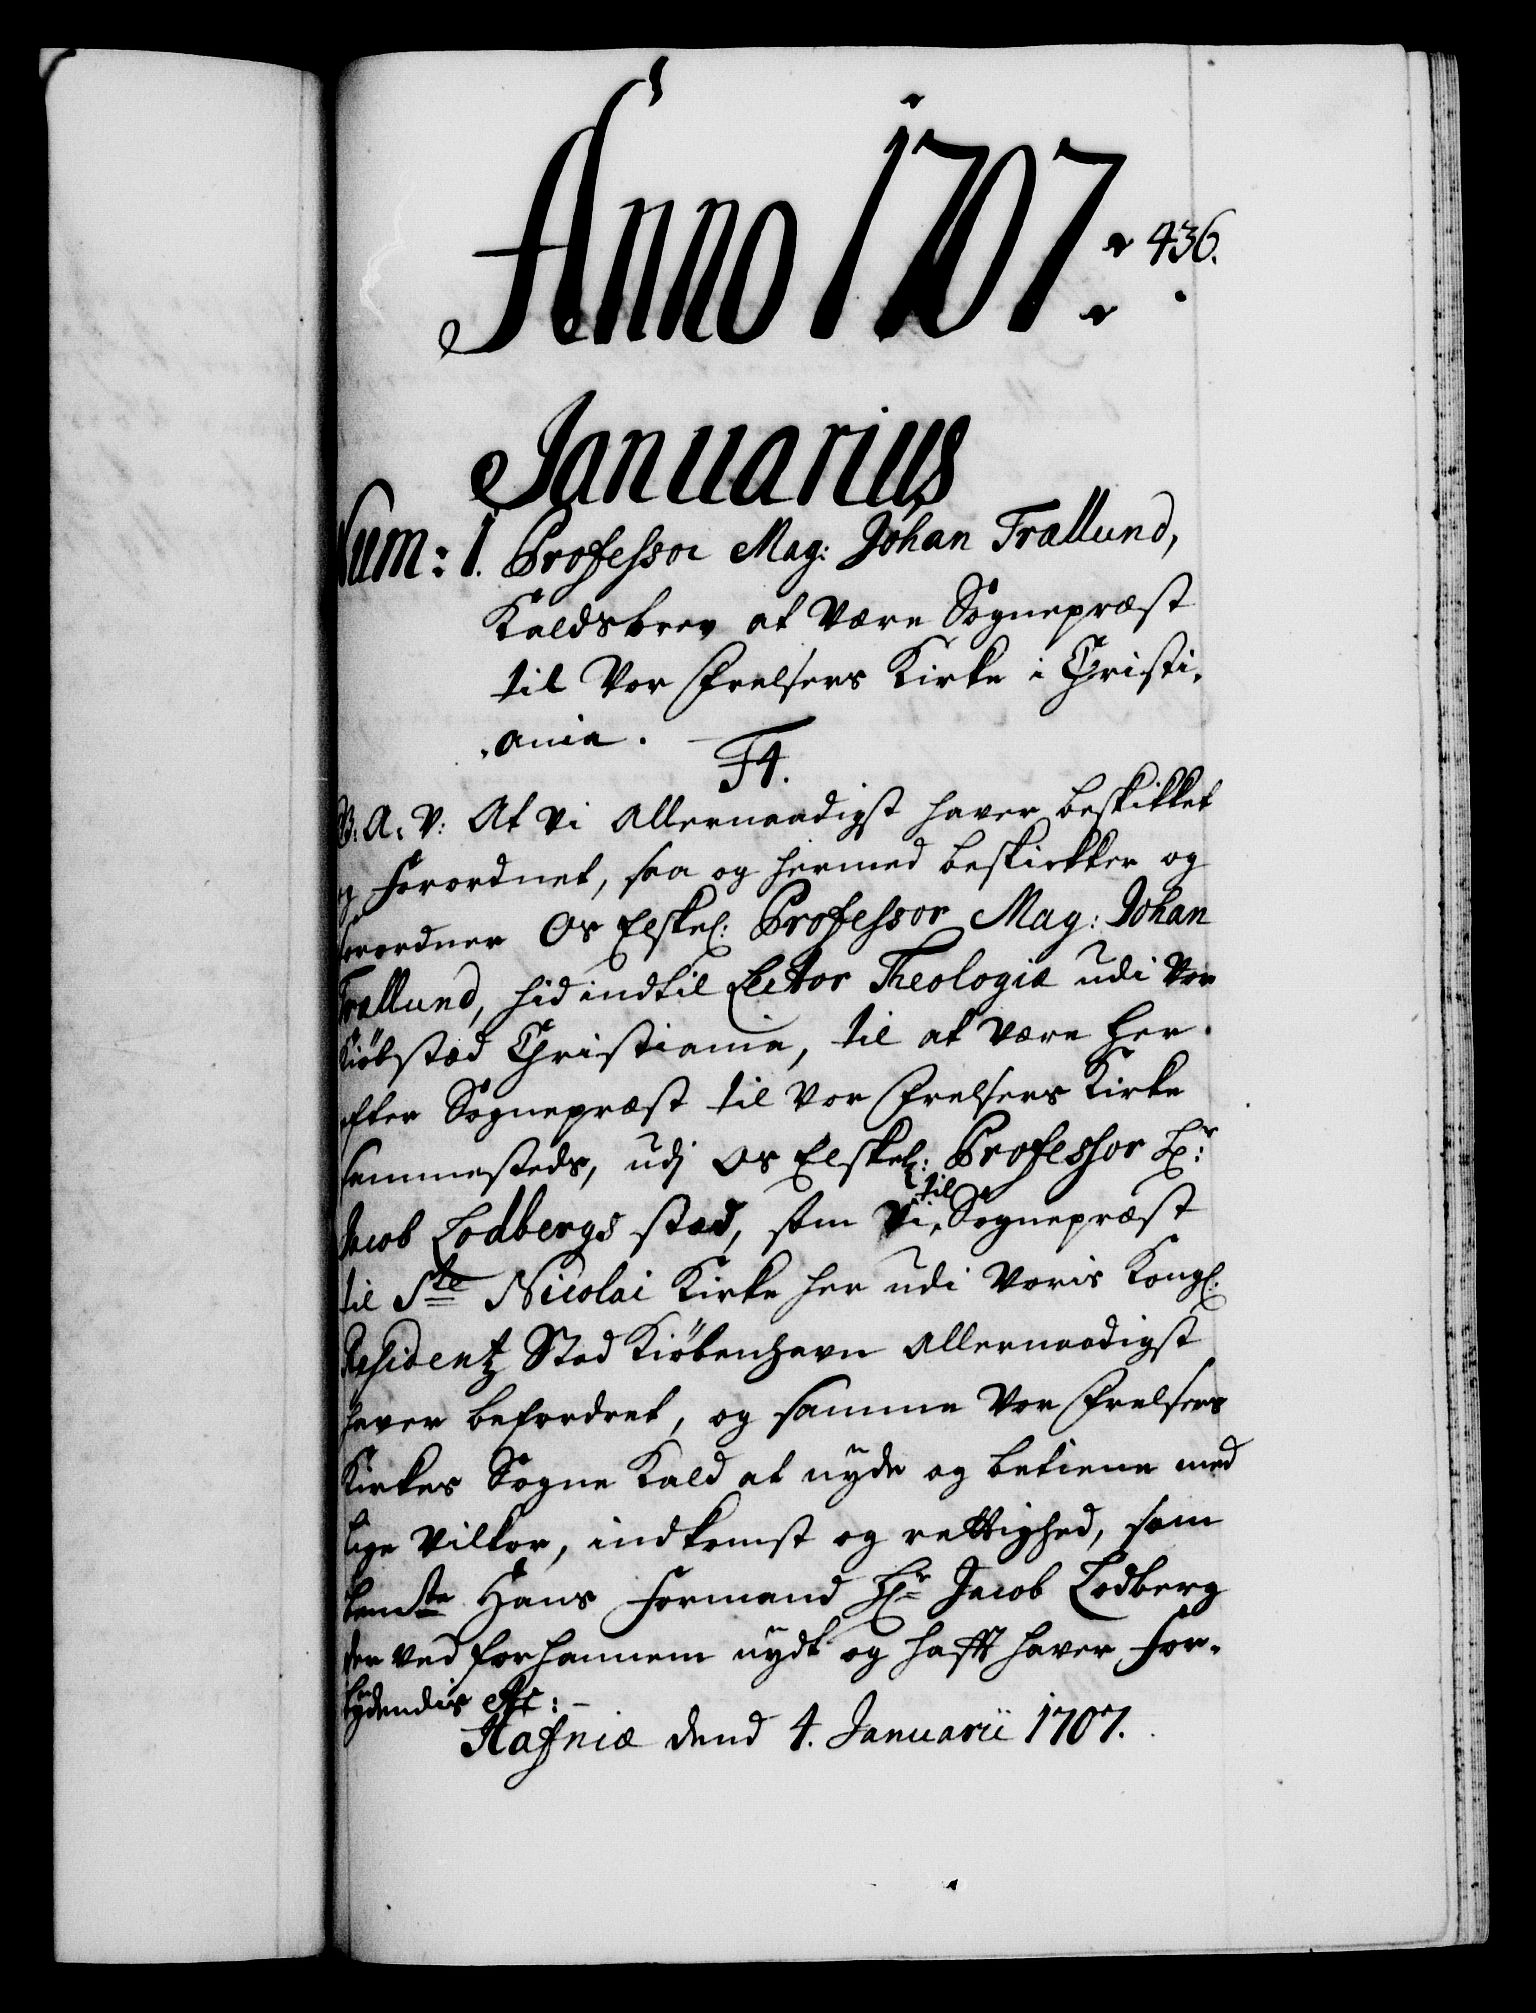 Anno 1707.
436.
Januarius
Num: 1. Professor Mag: Johan Trællund,
Kaldsbrev at være Sognepræst
til Vor Frelsers Kirke i Christi-
-ania.
F4.
G. A. V: At Vi Allernaadigst haver beskikket
og Forordnet, saa og hermed beskickker og
forordner Os Elskel: Professor Mag: Johan
Trællund, hid indtil Lector Theologiæ udi Vor
Kiöbstæd Christiania, til at være her-
efter Sognepræst til Vor Frelsers Kirke
sammesteds, udj Os Elskel: Professor Hr:
Jacob Lodbergs sted, som Vi til Sognepræst
til Ste Nicolai Kirke her udi Voris Kongl:
Residentz Stad Kiöbenhavn Allernaadigst
haver befordret, og samme Vor Frelsers
Kirkes Sogne Kald at nyde og betiene med
lige Vilkor, indkomst og rettighed, som
bemte Hans Formand Hr Jacob Lodberg
der ved forhannem nydt og hafft haver For-
bydendis etc:
Hafniæ dend 4. Januarii 1707.